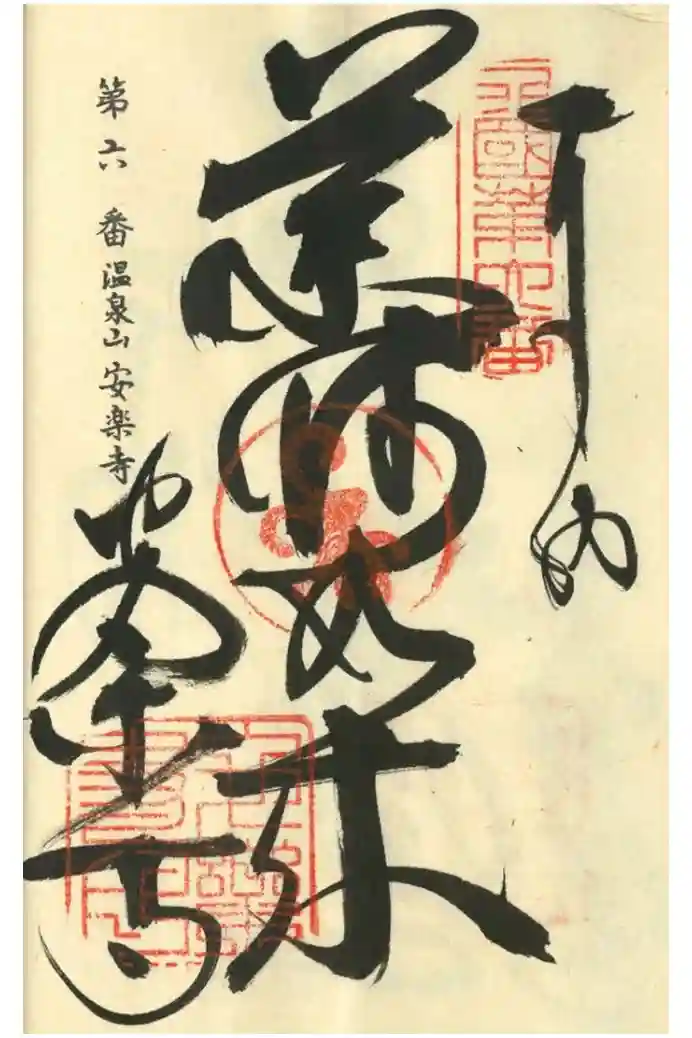 奉納
薬師如来
第六番温泉山安楽寺
安楽寺